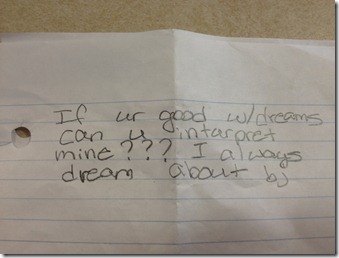 If ur good w/dreams
can u intarpret
mine??? I always
dream about bj